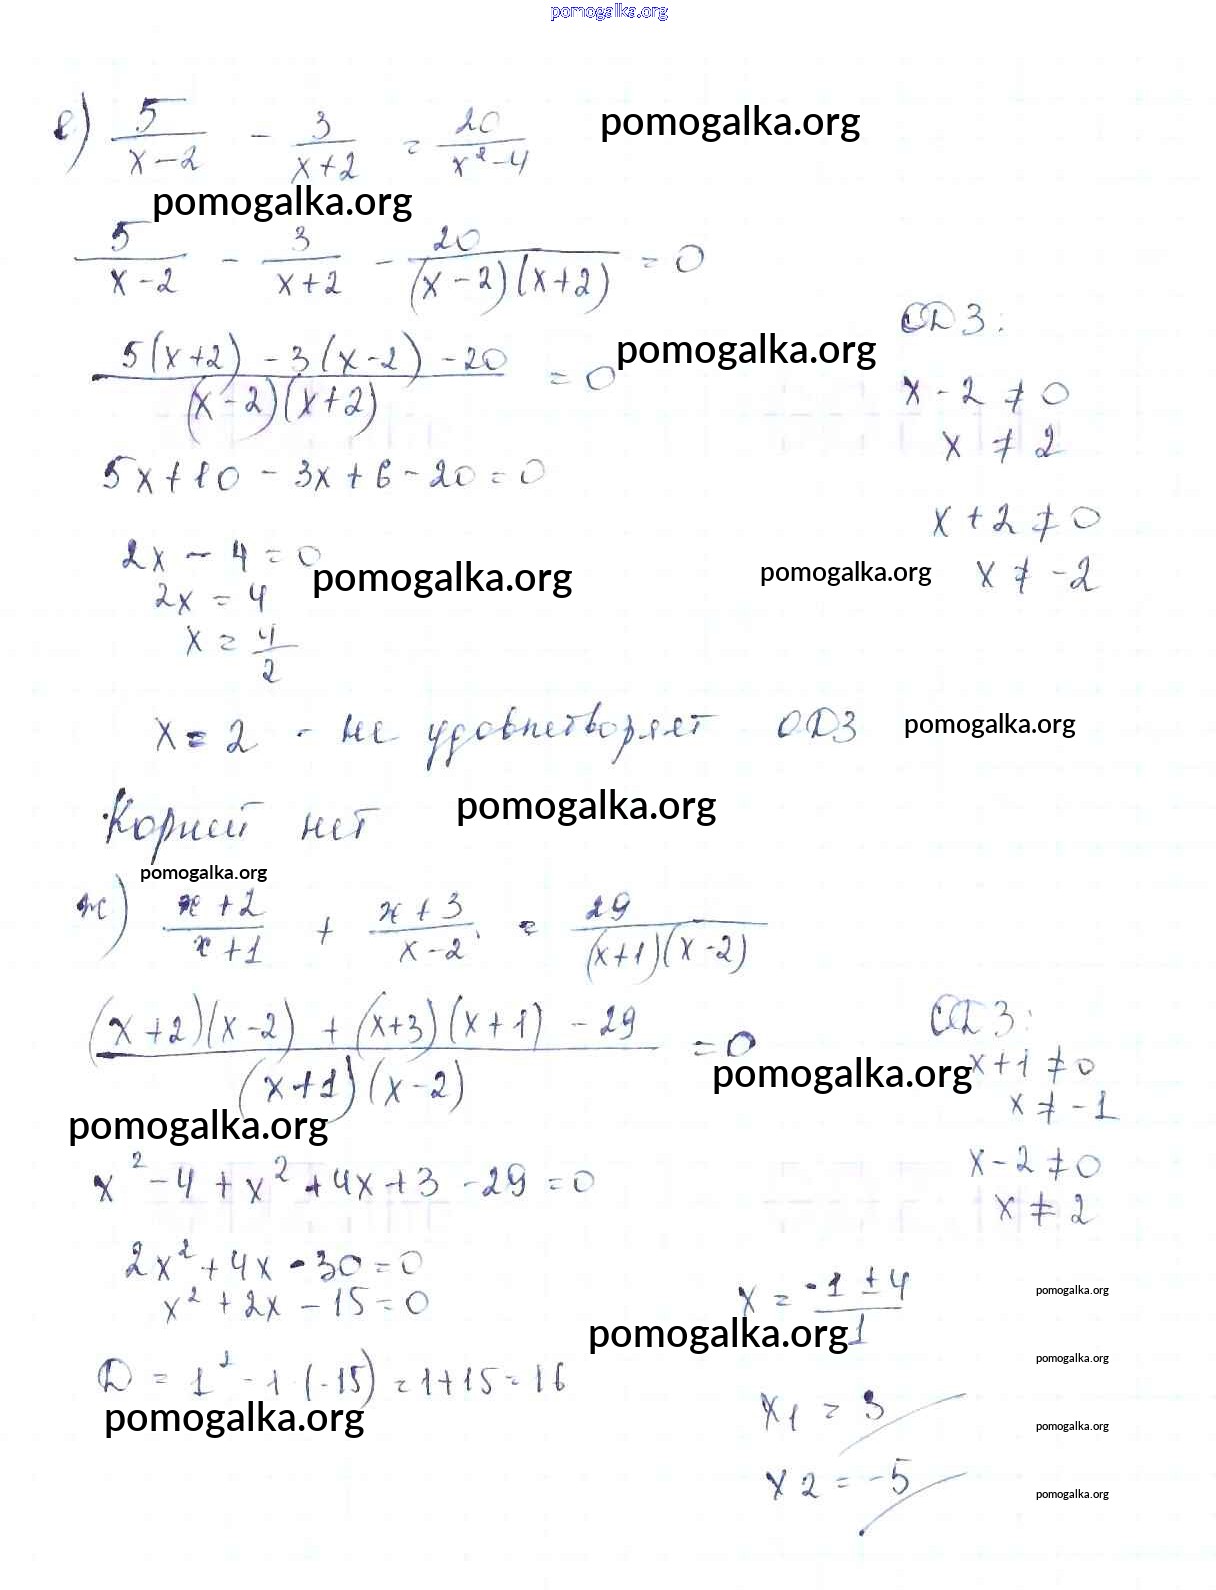 pomogalka.org
е) 5/(x-2) - 3/(x+2) = 20/(x²-4) pomogalka.org
pomogalka.org
5/(x-2) - 3/(x+2) - 20/((x-2)(x+2)) = 0
ОДЗ:
(5(x+2) - 3(x-2) - 20)/((x-2)(x+2)) = 0 pomogalka.org
x - 2 ≠ 0
x ≠ 2
5x + 10 - 3x + 6 - 20 = 0
x + 2 ≠ 0
2x - 4 = 0
pomogalka.org pomogalka.org x ≠ -2
2x = 4
x = 4/2
x = 2 - не удовлетворяет ОДЗ pomogalka.org
Корней нет pomogalka.org
pomogalka.org
ж) (x+2)/(x+1) + (x+3)/(x-2) = 29/((x+1)(x-2))
ОДЗ:
((x+2)(x-2) + (x+3)(x+1) - 29)/((x+1)(x-2)) = 0
pomogalka.org x+1 ≠ 0
x ≠ -1
pomogalka.org
x - 2 ≠ 0
x² - 4 + x² + 4x + 3 - 29 = 0
x ≠ 2
2x² + 4x - 30 = 0
x² + 2x - 15 = 0
x = (-1 ± 4)/1 pomogalka.org
pomogalka.org
pomogalka.org
D = 1² - 1·(-15) = 1+15 = 16
pomogalka.org
x1 = 3
pomogalka.org
x2 = -5
pomogalka.org